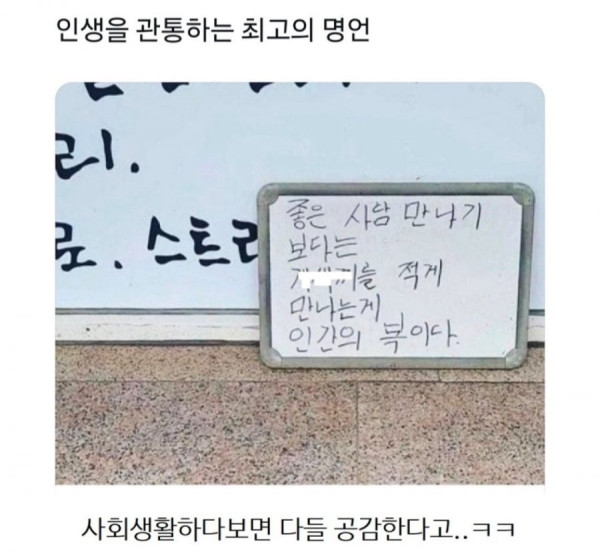 인생을 관통하는 최고의 명언
리.
로. 스트
좋은 사람 만나기
보다는
를 적게
만나는게
인간의 복이다.
사회생활하다보면 다들 공감한다고..ㅋㅋ